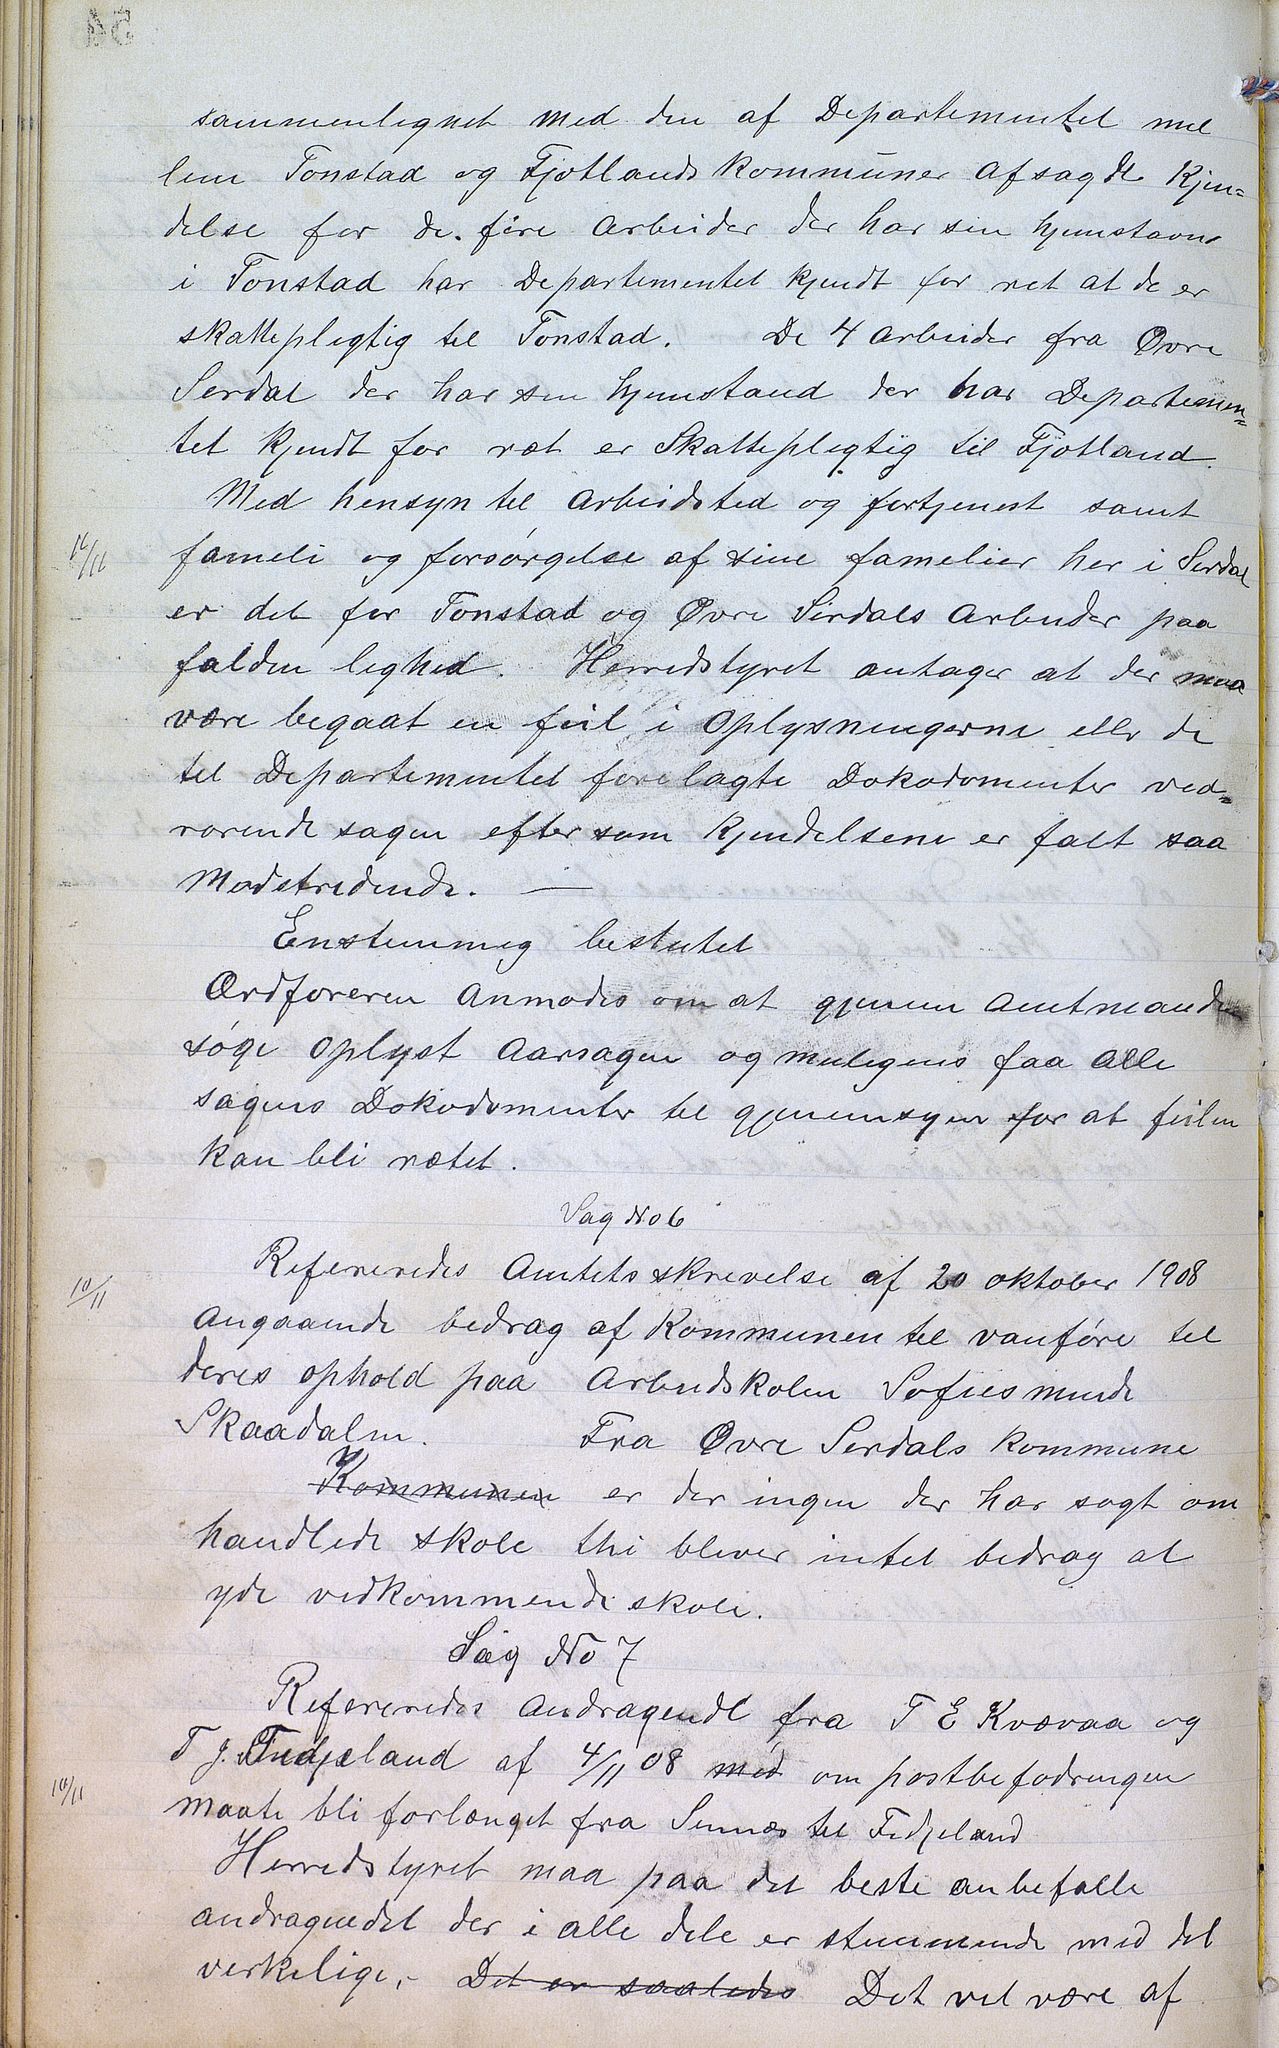 sammenlignet med den af Departementet mel
lem Tonstad og Fjotlands kommuner afsagde Kjen=
delse for de fire Arbeider der har sin hjemstavn
i Tonstad har Departementet kjendt for ret at de er
skattepligtig til Tonstad. De 4 arbeider fra Øvre
Serdal der har sin hjemstand der har Departemen=
tet kjendt for ræt er Skattepligtig til Fjotland.
Med hensyn til Arbeidsted og fortjenest samt
fameli og forsørgelse af sine familier her i Serdal
er det for Tonstad og Øvre Sirdals Arbeider paa
falden lighed. Herredstyret antager at der maa
være begaat en feil i Oplysningerne eller de
til Departementet forelagte Dokodomenter ved=
rørende sagen efter som kjendelsene er falt saa
Modstridende. —
Enstemmig besluttet
Ordføreren Anmodes om at gjennem Amtmanden
søge Oplyst Aarsagen og muligens faa Alle
sagens Dokodomenter til gjennemsyn for at feilen
kan bli rættet.
Sag No 6
10/11
Refereredes Amtets skrivelse af 20 oktober 1908
Angaaende bedrag af Kommunen til vanføre til
deres ophold paa Arbeidskolen Sofiesminde
Skaadalen. Fra Øvre Serdals kommune
Kommunen er der ingen der har søgt om
handlede skole thi bliver intet bedrag at
yde vedkommende skole.
Sag No 7
Refereredes Andragende fra T E Kvævaa og
T J. Fidjeland af 4/11 08 med om postbefodringen
10/11
maate bli forlænget fra Sinnæs til Fidjeland
Herredstyret maa paa det beste anbefalle
andragendet der i alle dele er stemmende med det
verkelige. Det er saaledes Det vil være af